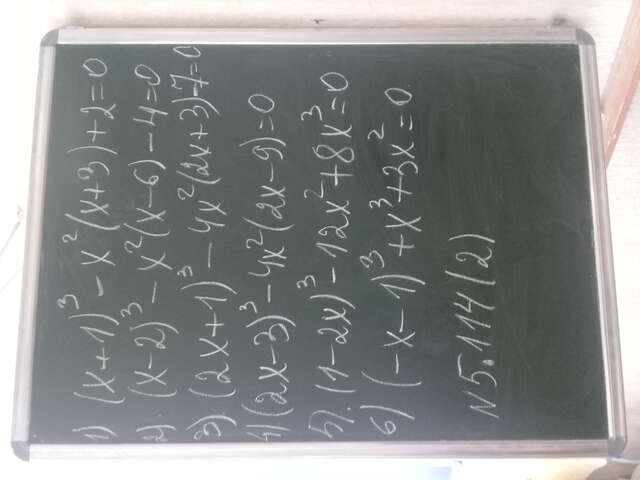 1) (x+1)³ - x²(x+3)+2=0
2). (x-2)³ - x²(x-6) - 4=0
3). (2x+1)³ - 4x²(2x+3)-7=0
4) (2x-3)³ - 4x²(2x-9)=0
5). (1-2x)³ - 12x²+8x³=0
6) (-x-1)³+x³+3x²=0.
N5.114(2)